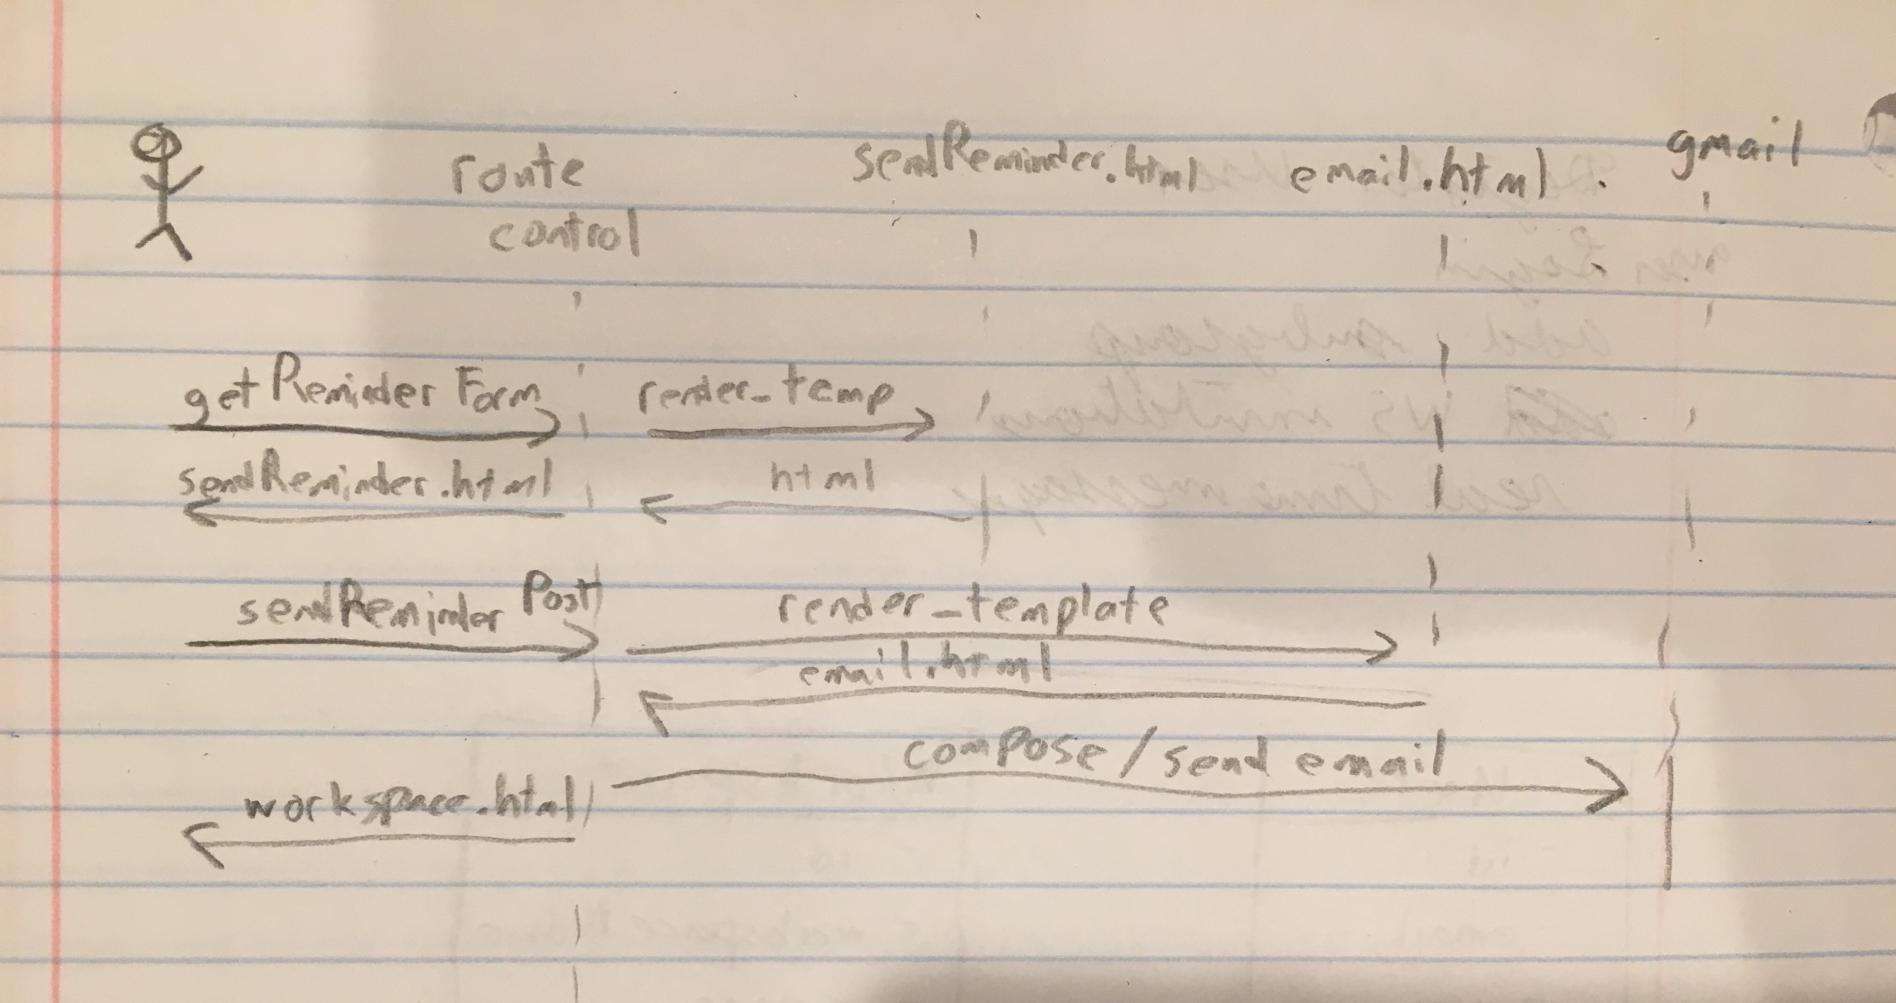 route control
sendReminder.html
email.html
gmail
getReminder Form
render_temp
sendReminder.html
html
sendReminder Post
render_template
email.html
compose/send email
workspace.html